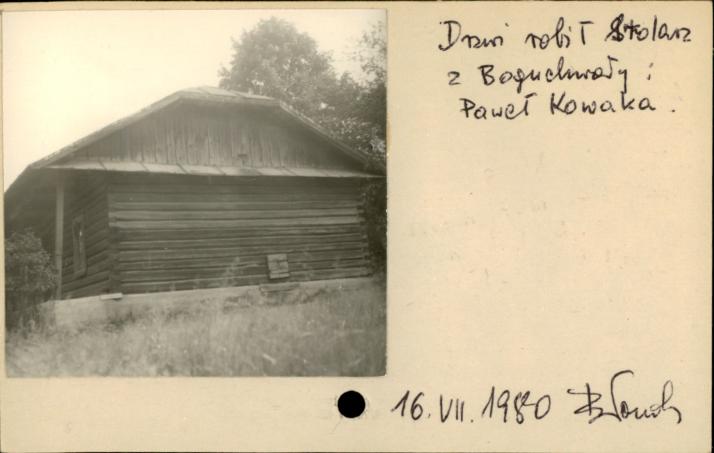 Drzwi robił Stolarz
z Boguchwały i
Paweł Kowaka.
16.VII.1980